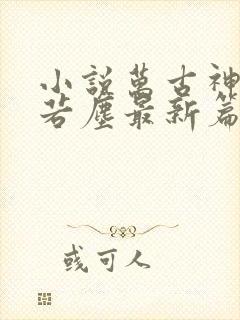 小說萬古神
若塵最新篇
或可人